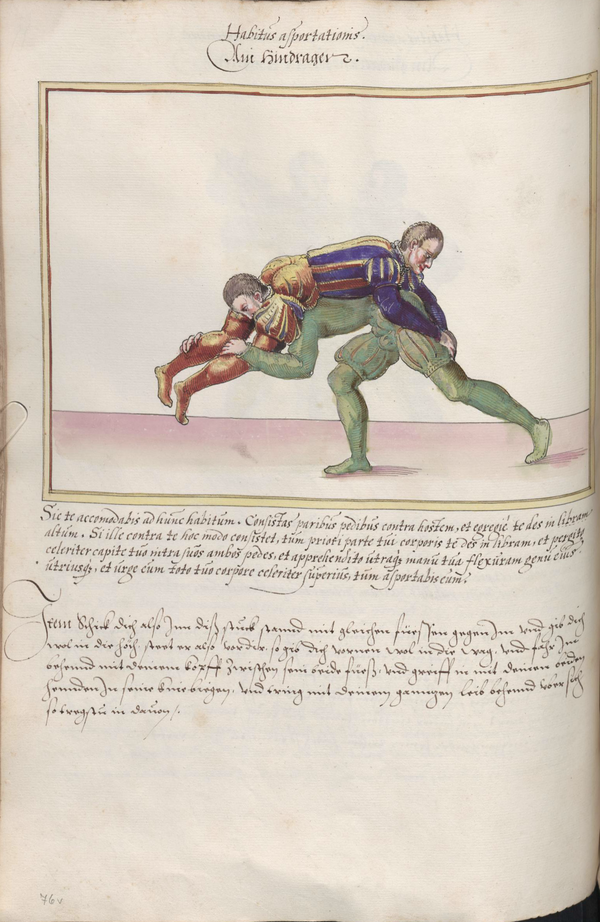 Habitus asportationis.
Ain Hindrager.
Sic te accomodabis ad hunc habitum. Consistas paribus pedibus contra hostem, et egregie te des in libram
altum. Si ille contra te hoc modo consistet, tum priori parte tui corporis te des in libram, et pergito
celeriter capite tuo intra suos ambos pedes, et apprehendito utraq; manu tua flexuram genu eius
utriusq;, et urge eum toto tuo corpore celeriter superius, tum asportabis eum.
Item Schick dich also Inn diß stuck stannd mit gleichen füessen gegen Im vnd gib dich
wol in die höch steet er also vor dir, so gib dich vornen wol in die wag, vnd fahr Im
behennd mit deinem kopff zwischen sein beide füeß, vnd greiff in mit deinen beiden
hennden In seine kniebiegen, vnd tring mit deinem ganntzen leib behennd vber sich
so tregstu in dauon /.
76v